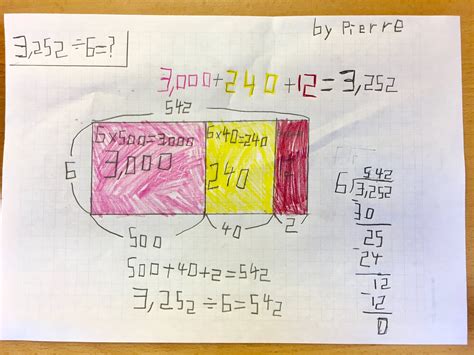 3,252 ÷6=?
by Pierre
3,000+240+12=3,252
542
6×500=3000
6×40=240
6
3,000
240
500
40
2
500+40+2=542
3,252÷6=542
542
6)3,252
30
25
-24
12
-12
0